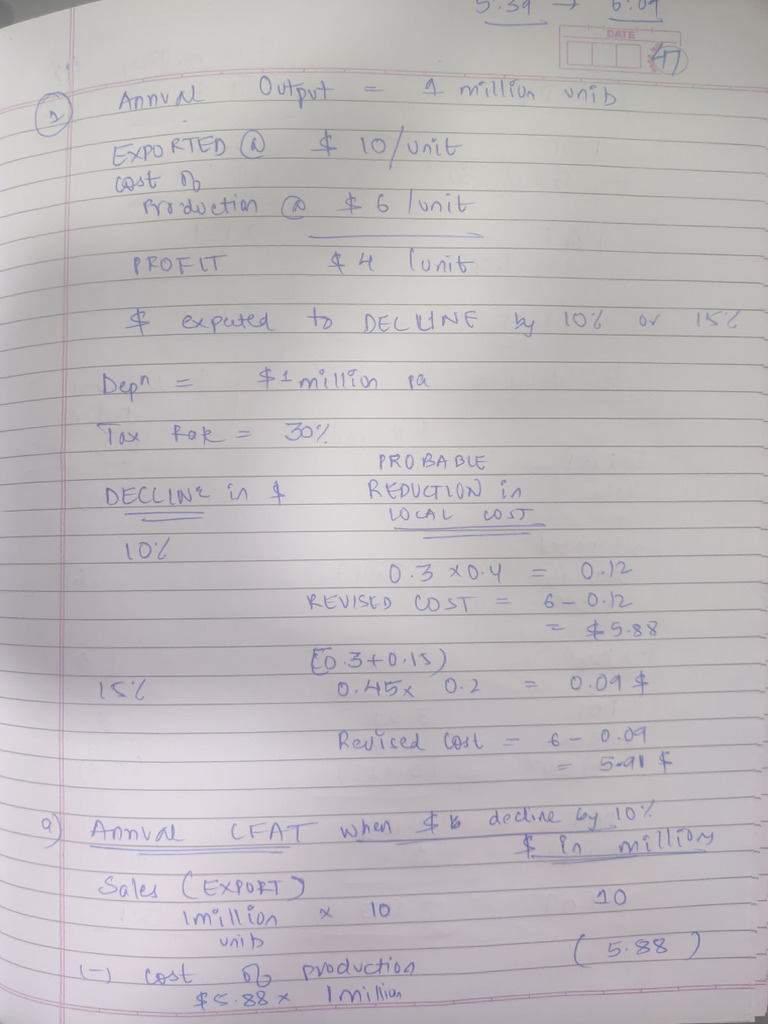 5.39 → 6.09
DATE
47
2 Annual Output = 1 million units
EXPORTED @ $ 10/unit
cost of
Production @ $ 6 /unit
PROFIT $ 4 /unit
$ expected to DECLINE by 10% or 15%
Depn = $1 million pa
Tax Rate = 30%
PROBABLE
DECLINE in $ REDUCTION in
LOCAL COST
10%
0.3 x 0.4 = 0.12
REVISED COST = 6 - 0.12
= $5.88
(0.3+0.15)
15% 0.45x 0.2 = 0.09 $
Revised Cost = 6 - 0.09
= 5.91 $
a) Annual CFAT when $ decline by 10%
$ in million
Sales (EXPORT)
1 million x 10 10
units
(-) cost of production (5.88)
$5.88 x 1 million